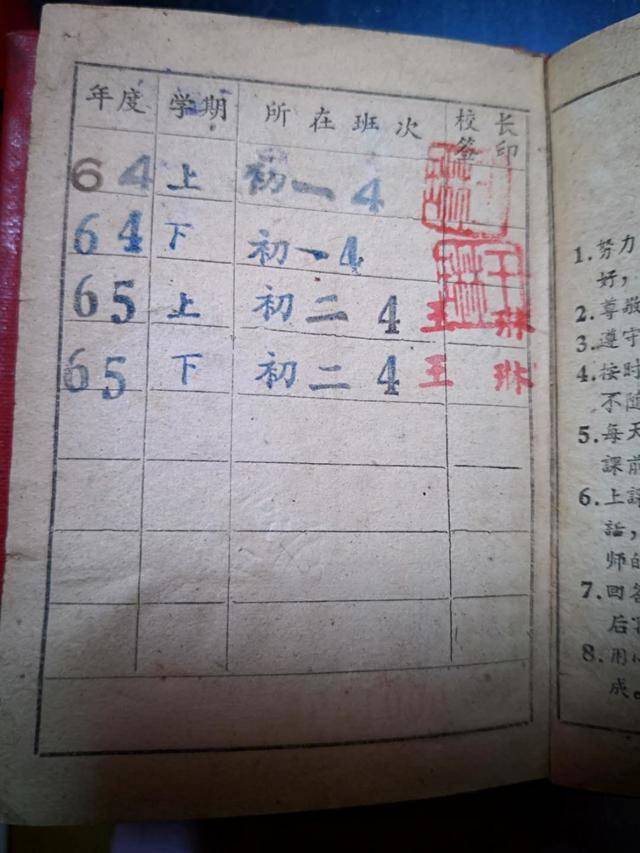 年度 学期 所在班次 校长签印
64 上 初一 4
64 下 初一 4
65 上 初二 4 王琳
65 下 初二 4 王琳
1. 努力
好，
2. 尊敬
3. 遵守
4. 按时
不随
5. 每天
課前
6. 上課
話，
师的
7. 回答
后
8. 用心
成。